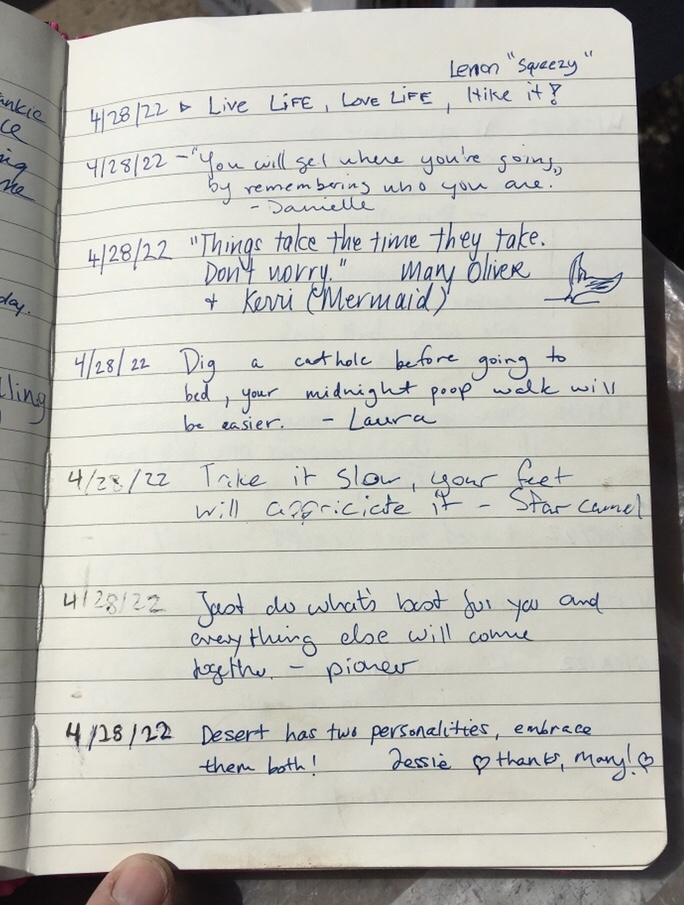 ankie
ce
ing
me
day.
lling
Lemon "Squeezy"
4/28/22 ▹ Live LiFE, Love LiFE, Hike it!
4/28/22 – "You will get where you're going,
by remembering who you are."
- Danielle
4/28/22 "Things take the time they take.
Don't worry." Mary Oliver
+ Kerri (Mermaid)
4/28/22 Dig a cathole before going to
bed, your midnight poop walk will
be easier. - Laura
4/28/22 Take it slow, your feet
will appriciate it - Star camel
4/28/22 Just do what's best for you and
everything else will come
together. - pioneer
4/28/22 Desert has two personalities, embrace
them both! Jessie ♡ thanks, Mary! ♡